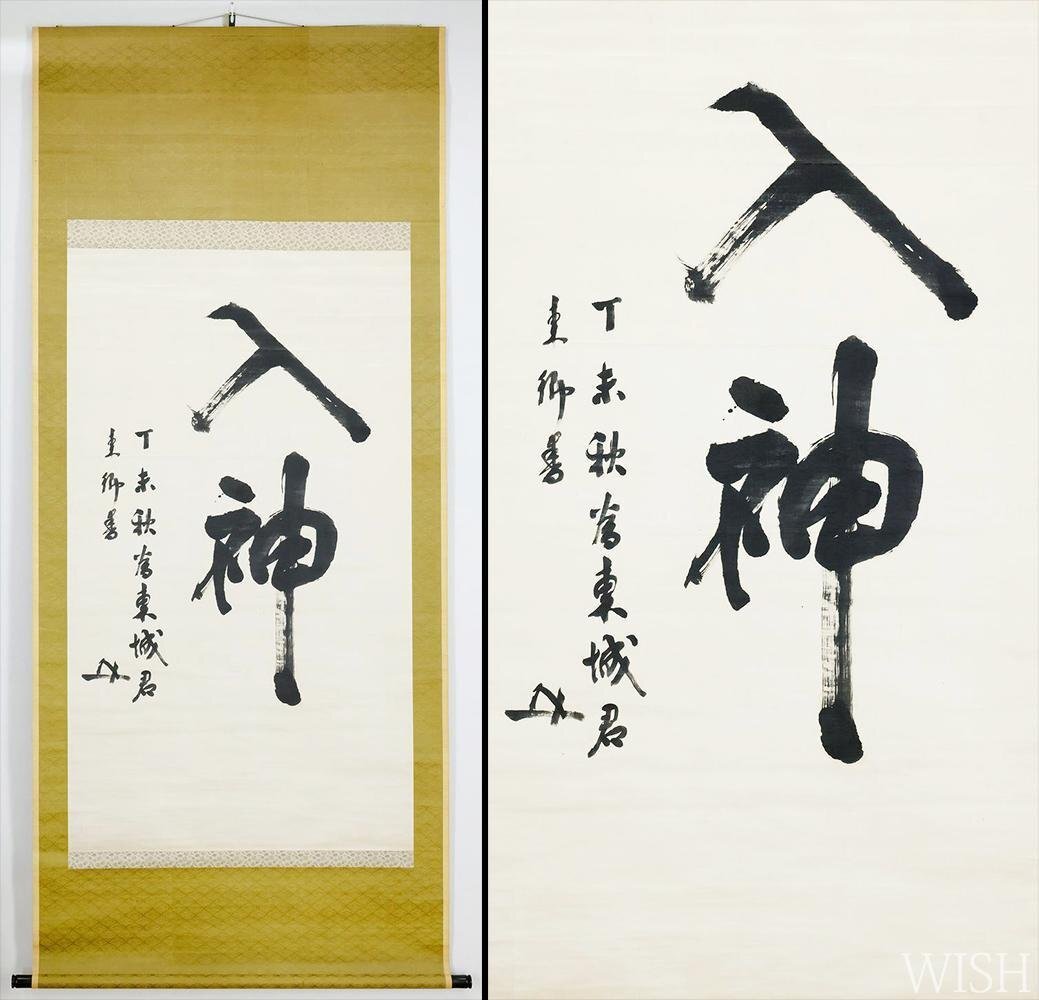 入神
丁未秋為東城君
卿書
入神
丁未秋為東城君
卿書
WISH